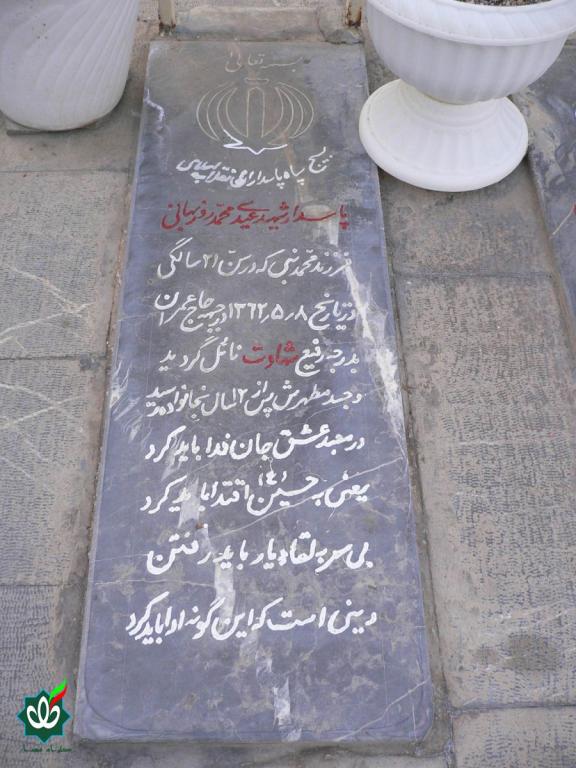 بسمه تعالی
بسیج سپاه پاسداران انقلاب اسلامی
پاسدار شهید عیدی محمد روزبهانی
فرزند محمد نبی که در سن ۲۱ سالگی
در تاریخ ۱۳۶۲٫۵٫۸ در جبهه حاج عمران
بدرجه رفیع شهادت نائل گردید
و جسد مطهرش پس از ۱۲ سال بخانواده رسید
در معبد عشق جان فدا باید کرد
یعنی به حسین (ع) اقتدا باید کرد
بی سر به لقاء یار باید رفتن
دینی است که این گونه ادا باید کرد